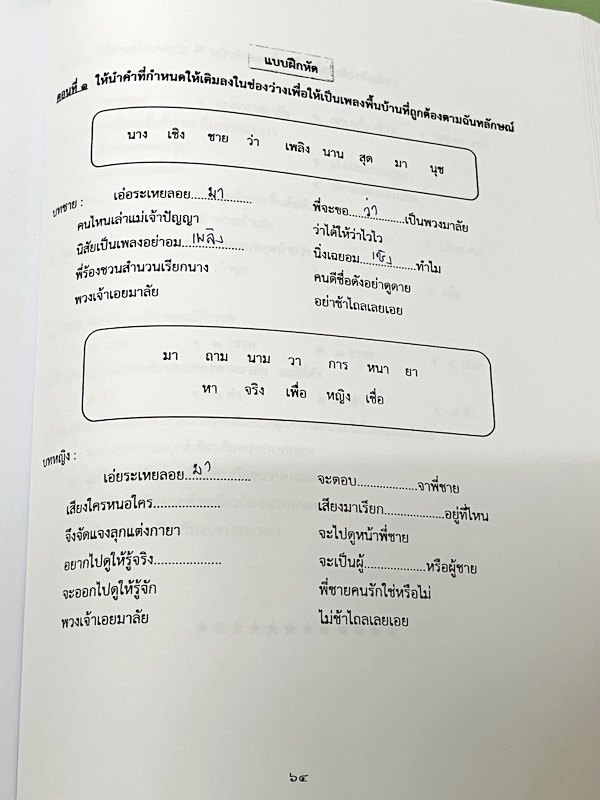 แบบฝึกหัด
ตอนที่ ๑ ให้นำคำที่กำหนดให้เติมลงในช่องว่างเพื่อให้เป็นเพลงพื้นบ้านที่ถูกต้องตามฉันทลักษณ์
นาง เชิง ชาย ว่า เพลิง นาน สุด มา นุช
บทชาย : เอ่อระเหยลอย...มา... พี่จะขอ...ว่า...เป็นพวงมาลัย
คนไหนเล่าแม่เจ้าปัญญา ว่าได้ให้ว่าไวไว
นิสัยเป็นเพลงอย่าอม...เพลิง... นิ่งเฉยอม...เชิง...ทำไม
พี่ร้องชวนสำนวนเรียกนาง คนดีชื่อดังอย่าดูดาย
พวงเจ้าเอยมาลัย อย่าช้าไถลเลยเอย
มา ถาม นาม วา การ หนา ยา
หา จริง เพื่อ หญิง เชื่อ
บทหญิง :
เอ่ยระเหยลอย...มา... จะตอบ...................จาพี่ชาย
เสียงใครหนอใคร................... เสียงมาเรียก...................อยู่ที่ไหน
จึงจัดแจงลุกแต่งกายา จะไปดูหน้าพี่ชาย
อยากไปดูให้รู้จริง................... จะเป็นผู้...................หรือผู้ชาย
จะออกไปดูให้รู้จัก พี่ชายคนรักใช่หรือไม่
พวงเจ้าเอยมาลัย ไม่ช้าไถลเลยเอย
๖๔